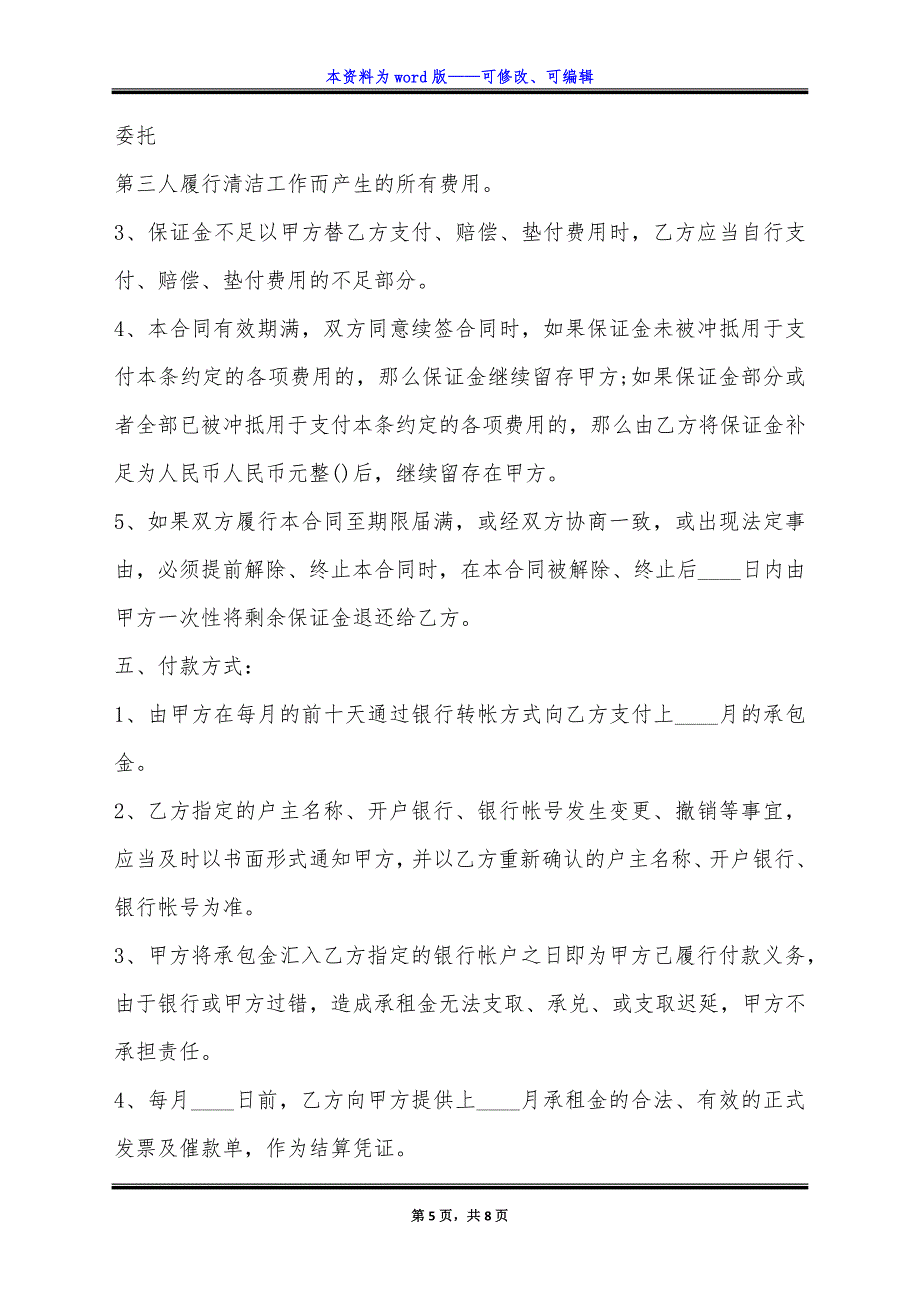 本资料为 word 版——可修改、可编辑
委托
第三人履行清洁工作而产生的所有费用。
3、保证金不足以甲方替乙方支付、赔偿、垫付费用时，乙方应当自行支
付、赔偿、垫付费用的不足部分。
4、本合同有效期满，双方同意续签合同时，如果保证金未被冲抵用于支
付本条约定的各项费用的，那么保证金继续留存甲方;如果保证金部分或
者全部已被冲抵用于支付本条约定的各项费用的，那么由乙方将保证金补
足为人民币人民币元整()后，继续留存在甲方。
5、如果双方履行本合同至期限届满，或经双方协商一致，或出现法定事
由，必须提前解除、终止本合同时，在本合同被解除、终止后____日内由
甲方一次性将剩余保证金退还给乙方。
五、付款方式：
1、由甲方在每月的前十天通过银行转帐方式向乙方支付上____月的承包
金。
2、乙方指定的户主名称、开户银行、银行帐号发生变更、撤销等事宜，
应当及时以书面形式通知甲方，并以乙方重新确认的户主名称、开户银行、
银行帐号为准。
3、甲方将承包金汇入乙方指定的银行帐户之日即为甲方己履行付款义务，
由于银行或甲方过错，造成承租金无法支取、承兑、或支取迟延，甲方不
承担责任。
4、每月____日前，乙方向甲方提供上____月承租金的合法、有效的正式
发票及催款单，作为结算凭证。
第 5 页，共 8 页